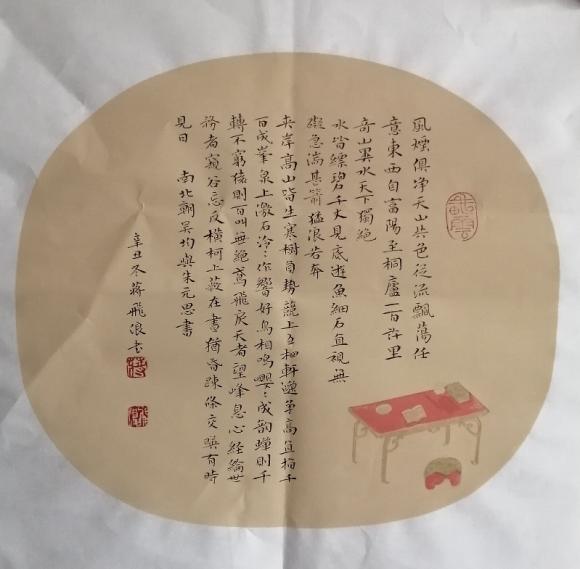 風煙俱净天山共色從流飄蕩任
意東西自富陽至桐廬一百許里
奇山異水天下獨絕
水皆縹碧千丈見底遊魚細石直視無
礙急湍甚箭猛浪若奔
夾岸高山皆生寒樹負勢競上互相軒邈爭高直指千
百成峯泉水激石泠〻作響好鳥相鳴嚶〻成韵蟬則千
轉不窮猿則百叫無絕鳶飛戾天者望峰息心經綸世
務者窺谷忘反橫柯上蔽在晝猶昏疎條交暎有時
見日 南北朝吳均與朱元思書
辛丑冬蔣飛浪书